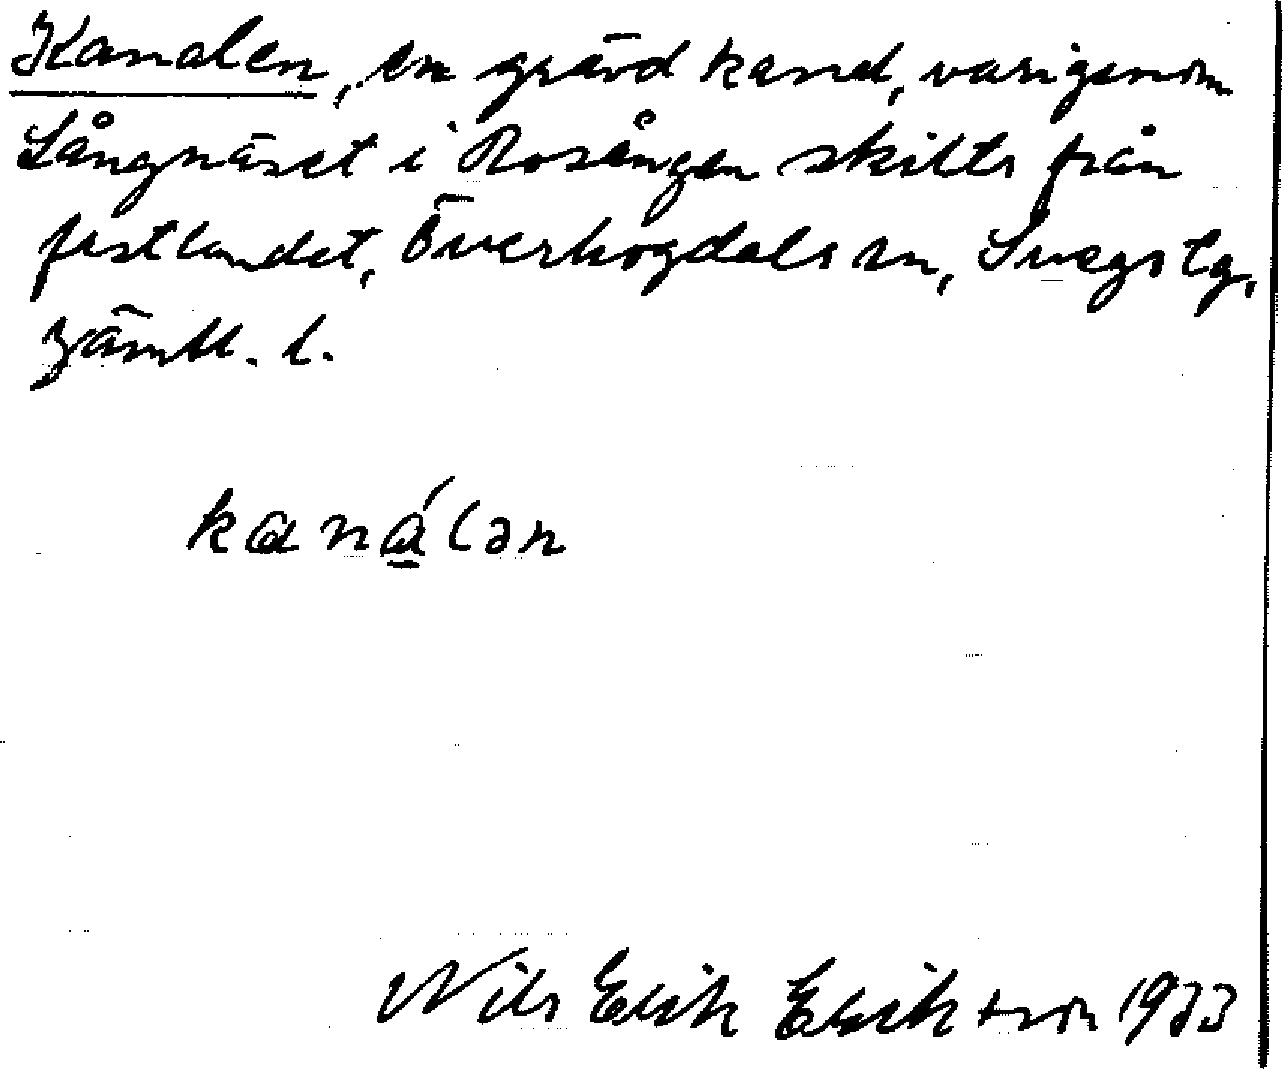 Kanalen, en grävd kanal, varigenom
Långnäset i Rosången skilts från
fastlandet, Överhogdals sn, Svegs tg,
Jämtl. l.
kanálən
Nils Erik Eriksson 1933